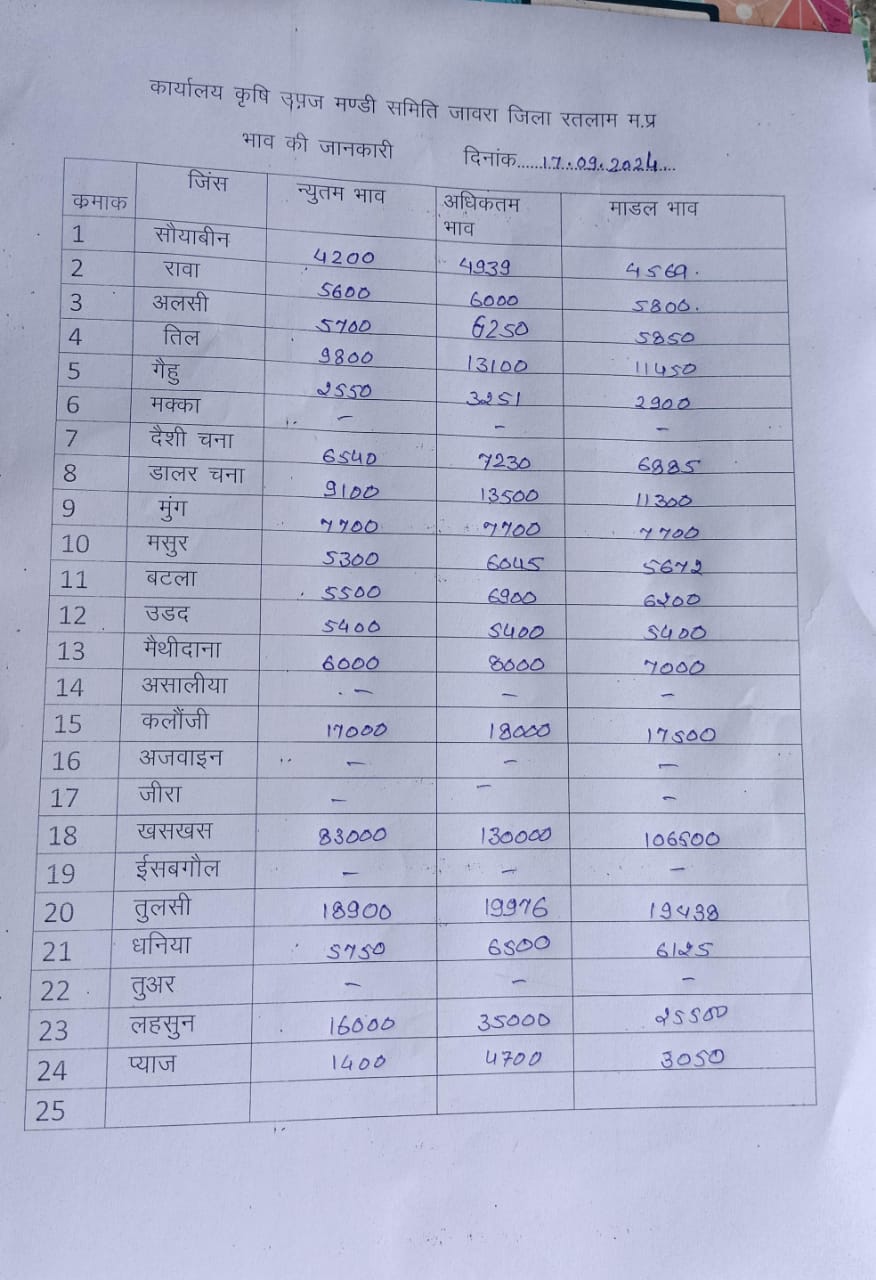 कार्यालय कृषि उपज मण्डी समिति जावरा जिला रतलाम म.प्र
भाव की जानकारी दिनांक......17.09.2024....
कमाक जिंस न्युतम भाव अधिकतम भाव माडल भाव
1 सौयाबीन 4200 4939 4569.
2 रावा 5600 6000 5800.
3 अलसी 5700 6250 5850
4 तिल 9800 13100 11450
5 गैहु 2550 3251 2900
6 मक्का - - -
7 दैशी चना 6540 7230 6885
8 डालर चना 9100 13500 11300
9 मुंग 7700 7700 7700
10 मसुर 5300 6045 5672
11 बटला 5500 6900 6200
12 उडद 5400 5400 5400
13 मैथीदाना 6000 8000 7000
14 असालीया - - -
15 कलौंजी 17000 18000 17500
16 अजवाइन - - -
17 जीरा - - -
18 खसखस 83000 130000 106500
19 ईसबगौल - - -
20 तुलसी 18900 19976 19438
21 धनिया 5750 6500 6125
22 तुअर - - -
23 लहसुन 16000 35000 25500
24 प्याज 1400 4700 3050
25